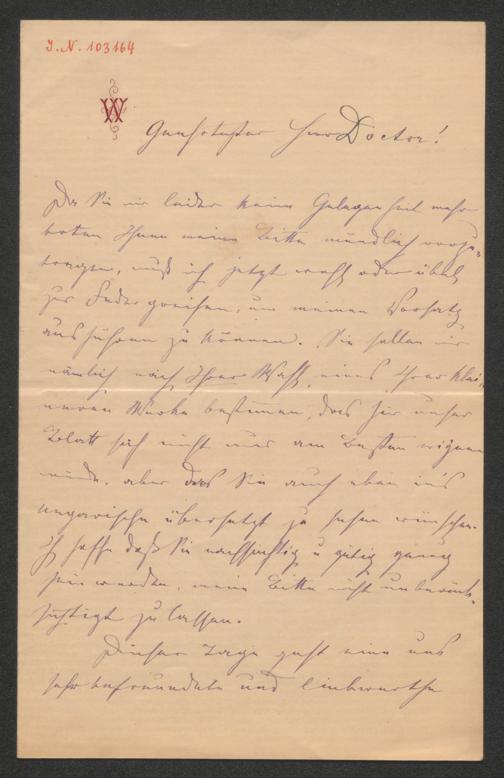 J. N. 103164
W
Geehrtester Herr Doctor!
Da Sie mir leider keine Gelegenheit mehr
boten Ihnen meine Bitte mündlich vorzu-
tragen, muß ich jetzt wohl oder übel
zur Feder greifen, um meinen Vorsatz
ausführen zu können. Sie sollen mir
nämlich nach Ihrer Wahl, eines Ihrer klei-
neren Werke bestimmen, das für unser
Blatt sich nicht nur am Besten eignen
würde, aber das Sie auch eben ins
ungarische übersetzt zu sehen wünschen.
Ich hoffe daß Sie nachsichtig u gütig genug
sein werden, meine Bitte nicht unberück-
sichtigt zu lassen.
Dieser Tage geht eine uns
sehr befreundete und liebwerthe